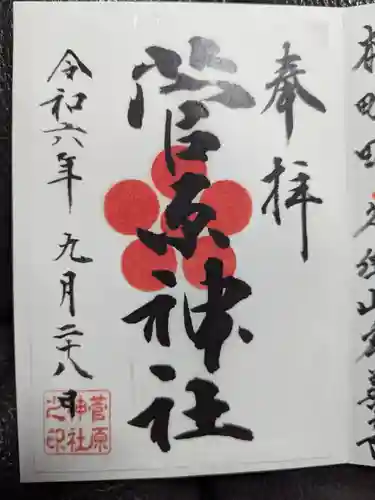 奉拝
菅原神社
令和六年九月二十八日
菅原
神社
之印